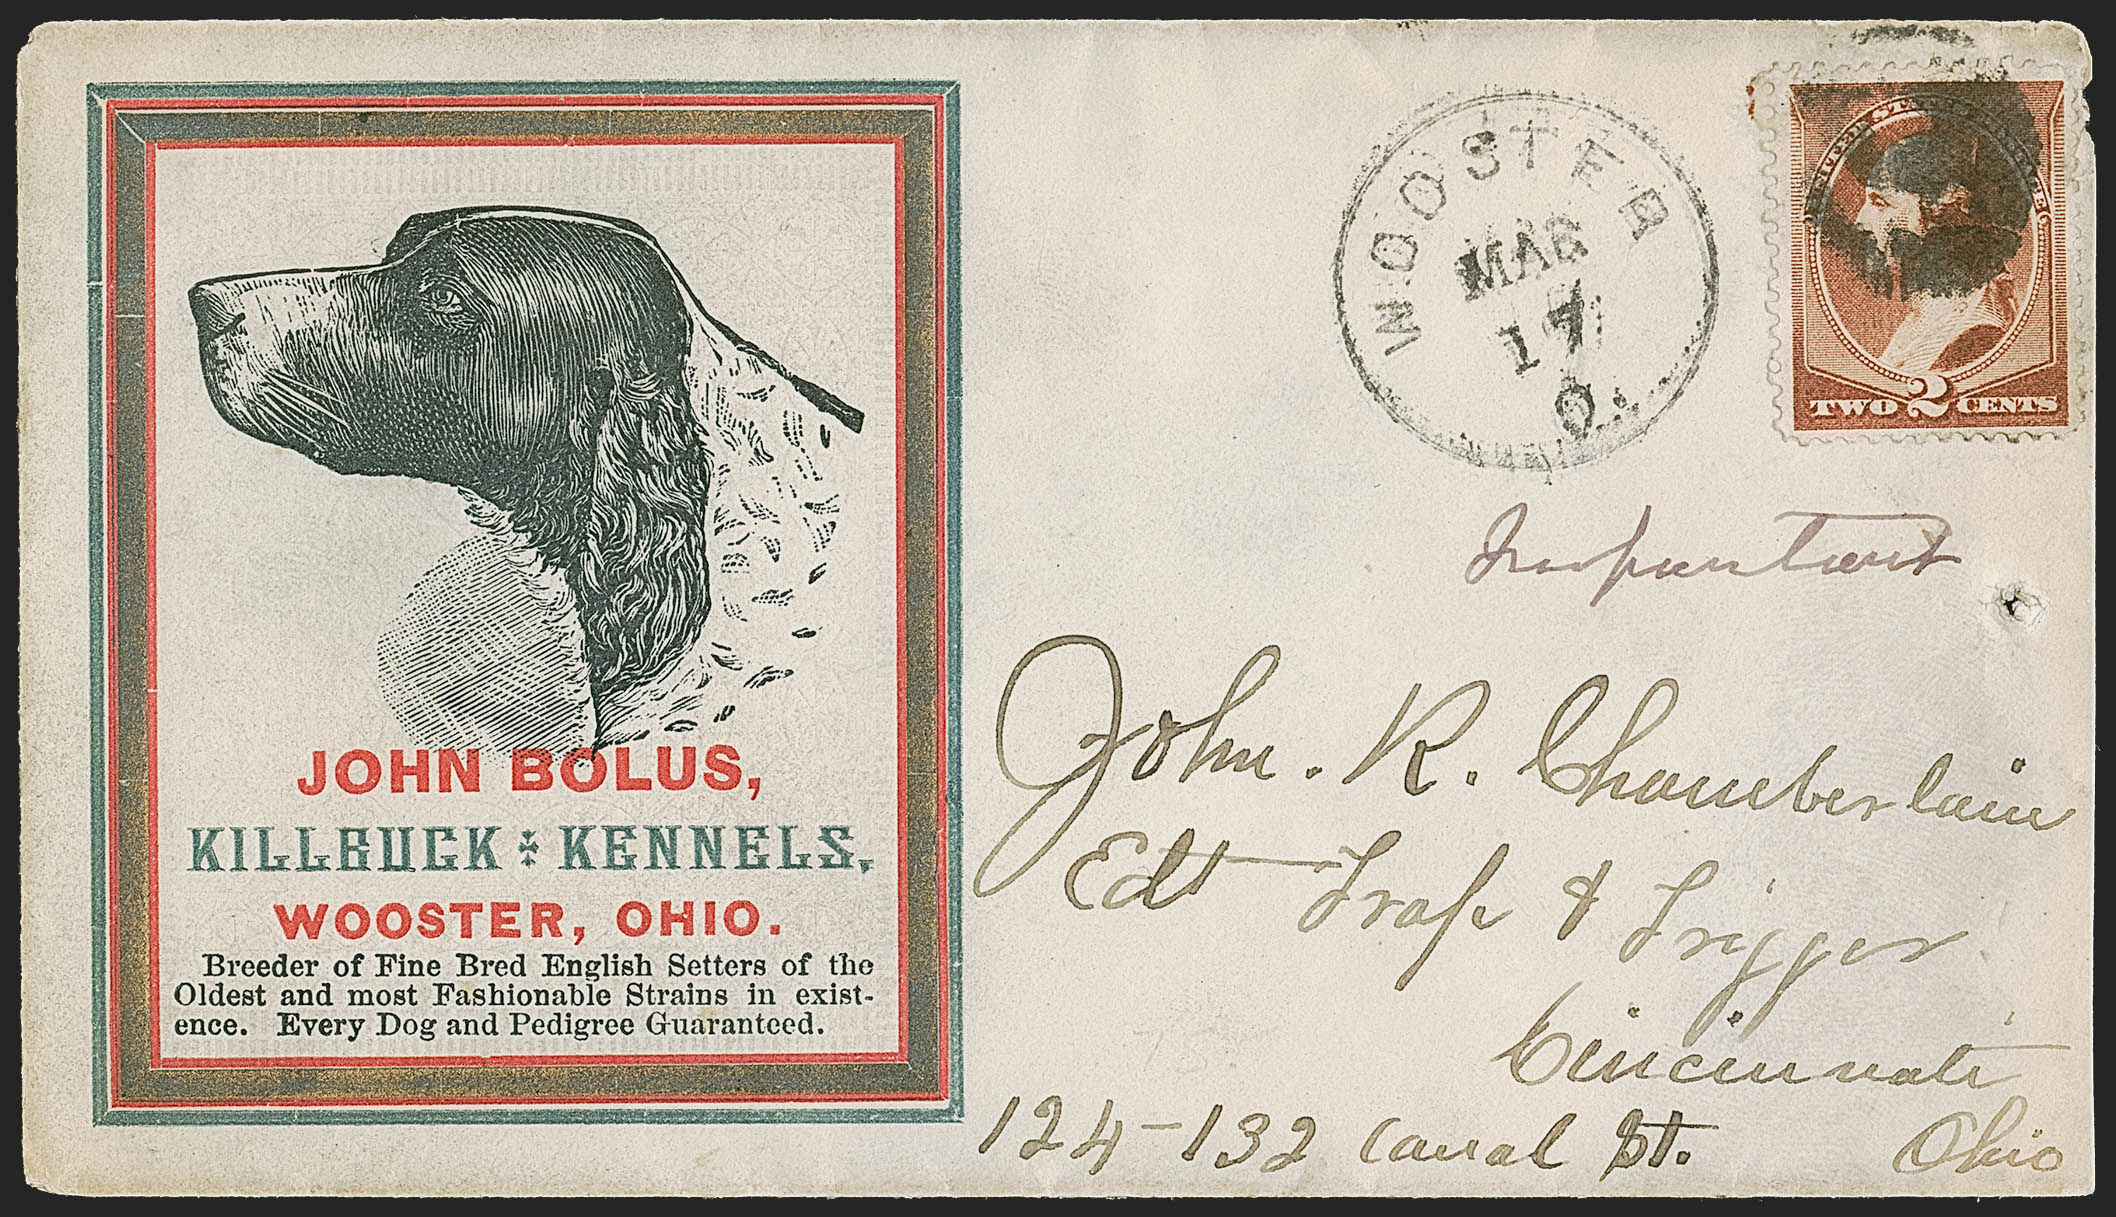 JOHN BOLUS,
KILLBUCK KENNELS,
WOOSTER, OHIO.
Breeder of Fine Bred English Setters of the
Oldest and most Fashionable Strains in exist-
ence. Every Dog and Pedigree Guaranteed.
WOOSTER
MAR
17
O.
UNITED STATES POSTAGE
TWO 2 CENTS
Important
John. R. Chamberlain
Edt Trap & Trigger
Cincinnati
124-132 Canal St. Ohio